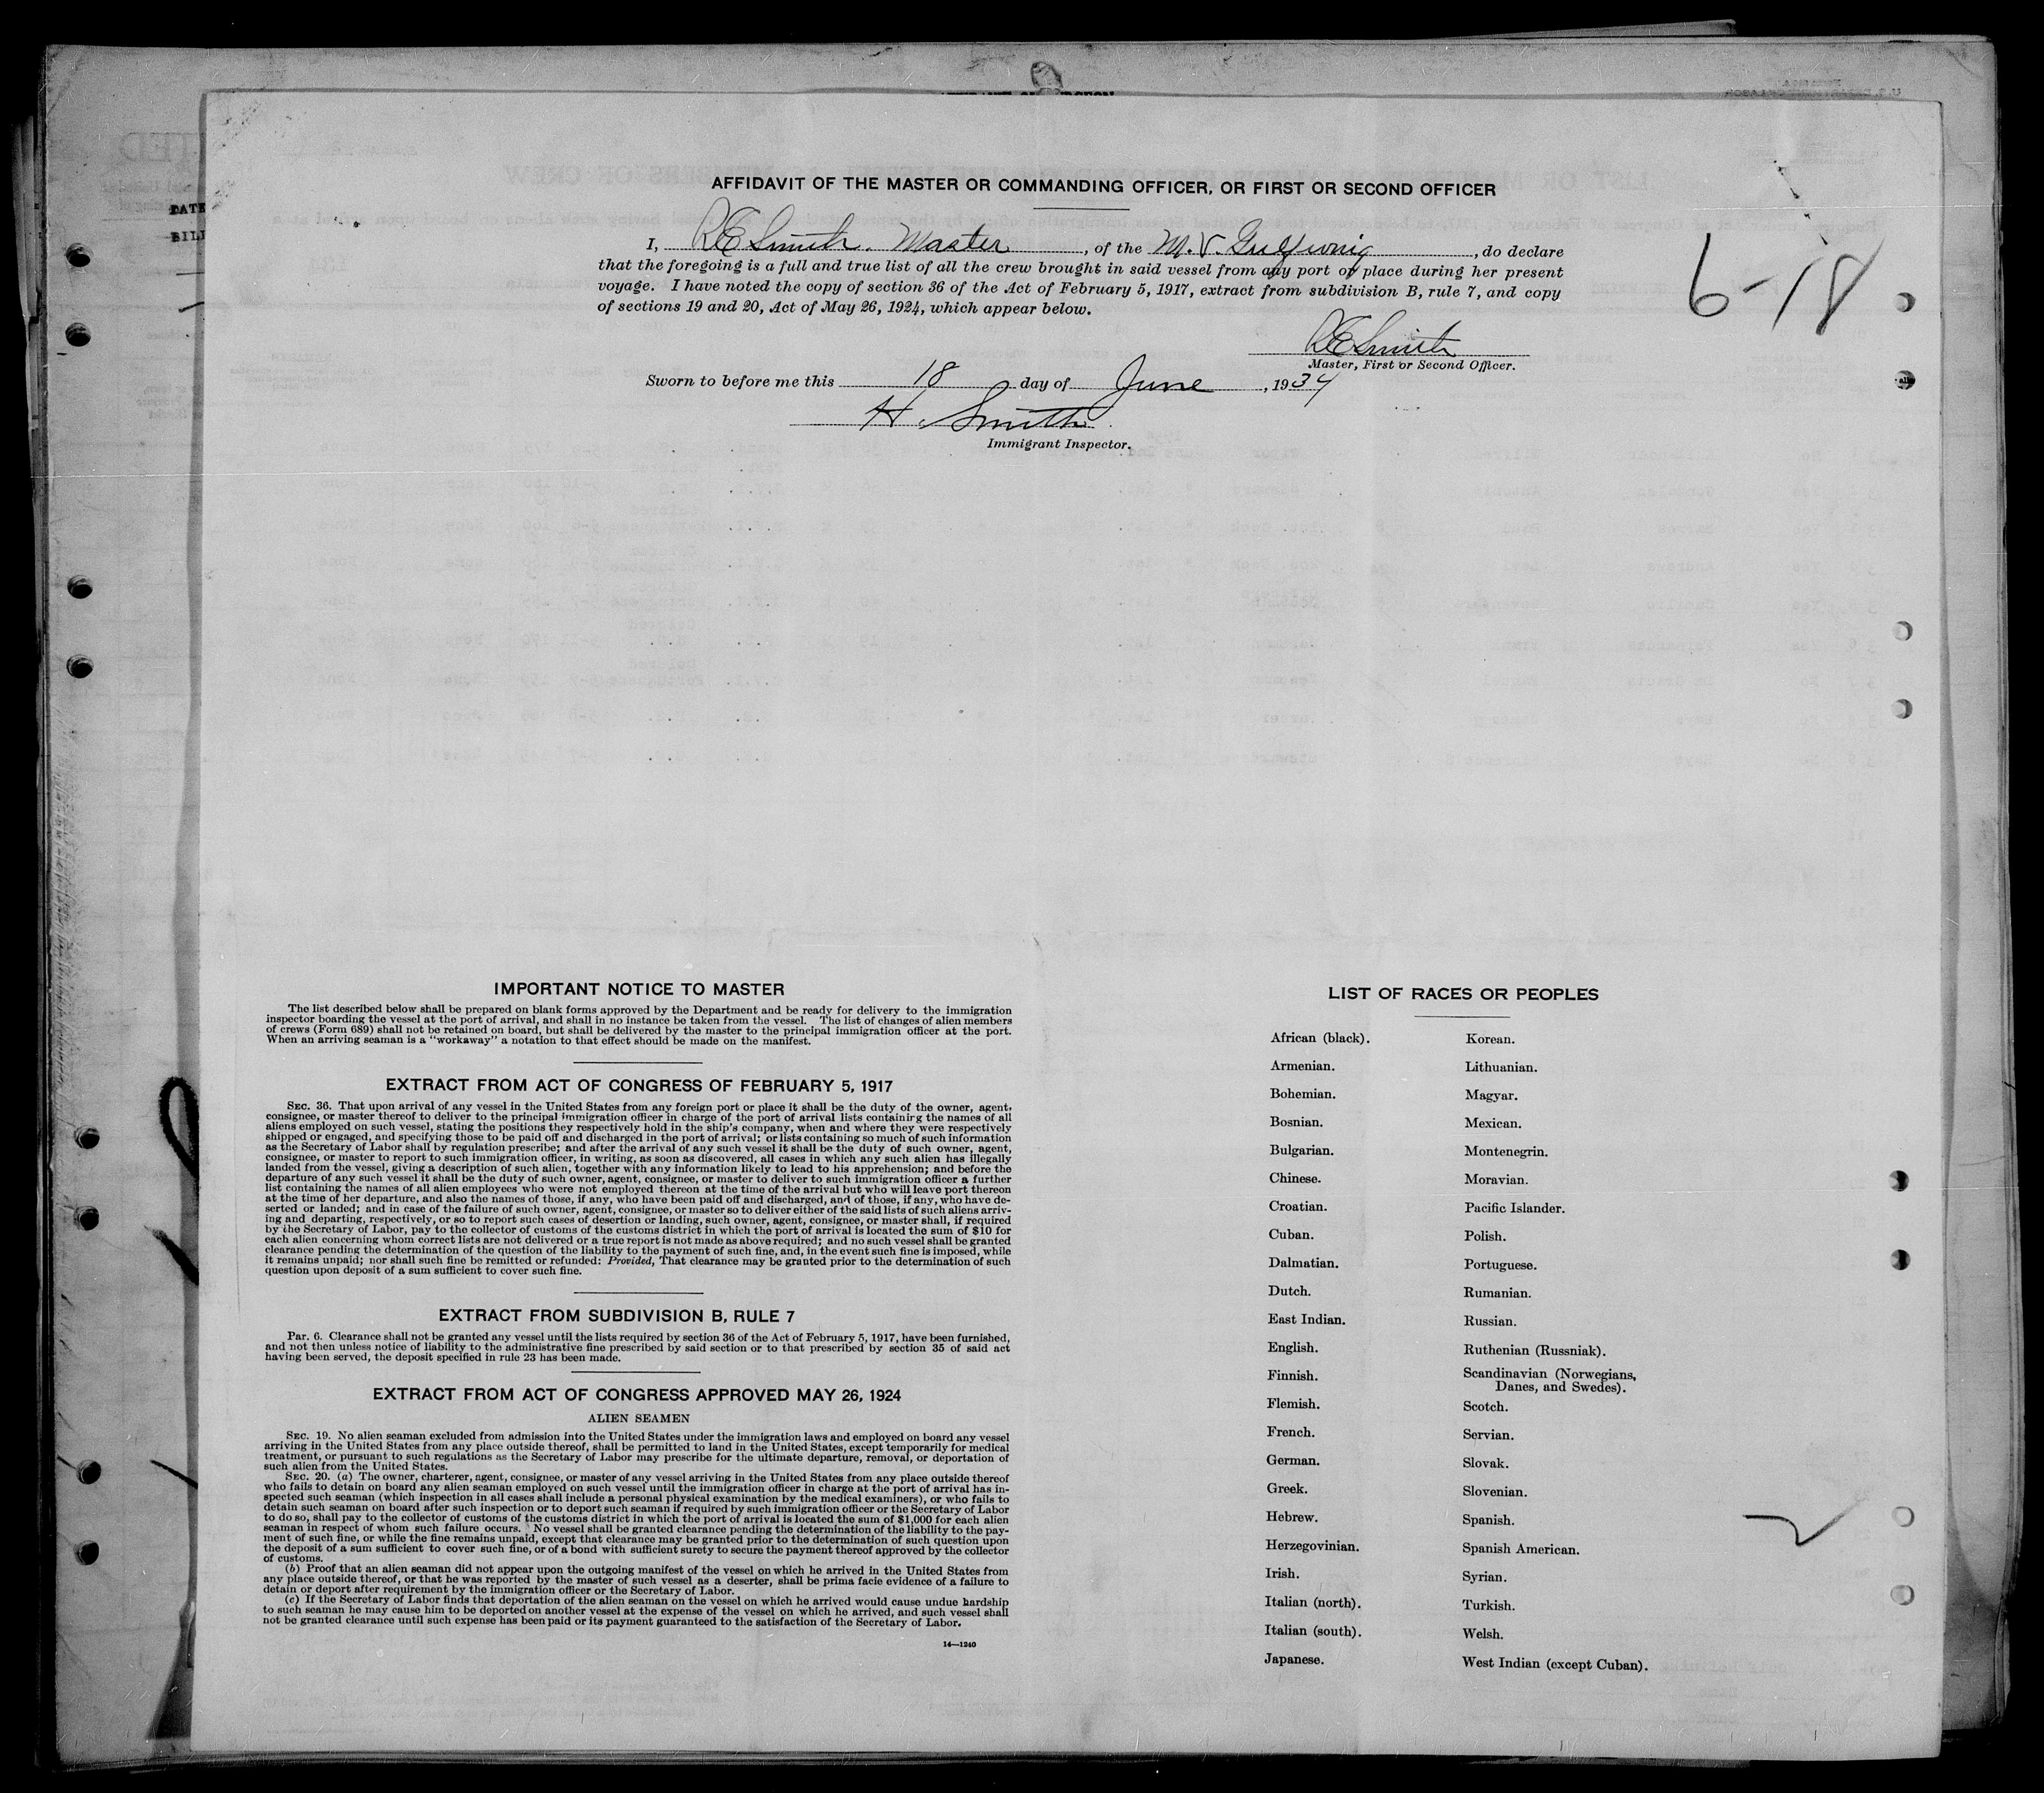 AFFIDAVIT OF THE MASTER OR COMMANDING OFFICER, OR FIRST OR SECOND OFFICER
I, R E Smith. Master, of the M. V. Gulfwing, do declare
that the foregoing is a full and true list of all the crew brought in said vessel from any port or place during her present
voyage. I have noted the copy of section 36 of the Act of February 5, 1917, extract from subdivision B, rule 7, and copy
of sections 19 and 20, Act of May 26, 1924, which appear below.
6-18
R E Smith
Master, First or Second Officer.
Sworn to before me this 18 day of June, 1934
H. Smith
Immigrant Inspector.
IMPORTANT NOTICE TO MASTER
The list described below shall be prepared on blank forms approved by the Department and be ready for delivery to the immigration
inspector boarding the vessel at the port of arrival, and shall in no instance be taken from the vessel. The list of changes of alien members
of crews (Form 689) shall not be retained on board, but shall be delivered by the master to the principal immigration officer at the port.
When an arriving seaman is a "workaway" a notation to that effect should be made on the manifest.
EXTRACT FROM ACT OF CONGRESS OF FEBRUARY 5, 1917
SEC. 36. That upon arrival of any vessel in the United States from any foreign port or place it shall be the duty of the owner, agent,
consignee, or master thereof to deliver to the principal immigration officer in charge of the port of arrival lists containing the names of all
aliens employed on such vessel, stating the positions they respectively hold in the ship's company, when and where they were respectively
shipped or engaged, and specifying those to be paid off and discharged in the port of arrival; or lists containing so much of such information
as the Secretary of Labor shall by regulation prescribe; and after the arrival of any such vessel it shall be the duty of such owner, agent,
consignee, or master to report to such immigration officer, in writing, as soon as discovered, all cases in which any such alien has illegally
landed from the vessel, giving a description of such alien, together with any information likely to lead to his apprehension; and before the
departure of any such vessel it shall be the duty of such owner, agent, consignee, or master to deliver to such immigration officer a further
list containing the names of all alien employees who were not employed thereon at the time of the arrival but who will leave port thereon
at the time of her departure, and also the names of those, if any, who have been paid off and discharged, and of those, if any, who have de-
serted or landed; and in case of the failure of such owner, agent, consignee, or master so to deliver either of the said lists of such aliens arriv-
ing and departing, respectively, or so to report such cases of desertion or landing, such owner, agent, consignee, or master shall, if required
by the Secretary of Labor, pay to the collector of customs of the customs district in which the port of arrival is located the sum of $10 for
each alien concerning whom correct lists are not delivered or a true report is not made as above required; and no such vessel shall be granted
clearance pending the determination of the question of the liability to the payment of such fine, and, in the event such fine is imposed, while
it remains unpaid; nor shall such fine be remitted or refunded: Provided, That clearance may be granted prior to the determination of such
question upon deposit of a sum sufficient to cover such fine.
EXTRACT FROM SUBDIVISION B, RULE 7
Par. 6. Clearance shall not be granted any vessel until the lists required by section 36 of the Act of February 5, 1917, have been furnished,
and not then unless notice of liability to the administrative fine prescribed by said section or to that prescribed by section 35 of said act
having been served, the deposit specified in rule 23 has been made.
EXTRACT FROM ACT OF CONGRESS APPROVED MAY 26, 1924
ALIEN SEAMEN
SEC. 19. No alien seaman excluded from admission into the United States under the immigration laws and employed on board any vessel
arriving in the United States from any place outside thereof, shall be permitted to land in the United States, except temporarily for medical
treatment, or pursuant to such regulations as the Secretary of Labor may prescribe for the ultimate departure, removal, or deportation of
such alien from the United States.
SEC. 20. (a) The owner, charterer, agent, consignee, or master of any vessel arriving in the United States from any place outside thereof
who fails to detain on board any alien seaman employed on such vessel until the immigration officer in charge at the port of arrival has in-
spected such seaman (which inspection in all cases shall include a personal physical examination by the medical examiners), or who fails to
detain such seaman on board after such inspection or to deport such seaman if required by such immigration officer or the Secretary of Labor
to do so, shall pay to the collector of customs of the customs district in which the port of arrival is located the sum of $1,000 for each alien
seaman in respect of whom such failure occurs. No vessel shall be granted clearance pending the determination of the liability to the pay-
ment of such fine, or while the fine remains unpaid, except that clearance may be granted prior to the determination of such question upon
the deposit of a sum sufficient to cover such fine, or of a bond with sufficient surety to secure the payment thereof approved by the collector
of customs.
(b) Proof that an alien seaman did not appear upon the outgoing manifest of the vessel on which he arrived in the United States from
any place outside thereof, or that he was reported by the master of such vessel as a deserter, shall be prima facie evidence of a failure to
detain or deport after requirement by the immigration officer or the Secretary of Labor.
(c) If the Secretary of Labor finds that deportation of the alien seaman on the vessel on which he arrived would cause undue hardship
to such seaman he may cause him to be deported on another vessel at the expense of the vessel on which he arrived, and such vessel shall
not be granted clearance until such expense has been paid or its payment guaranteed to the satisfaction of the Secretary of Labor.
14—1240
LIST OF RACES OR PEOPLES
African (black).
Armenian.
Bohemian.
Bosnian.
Bulgarian.
Chinese.
Croatian.
Cuban.
Dalmatian.
Dutch.
East Indian.
English.
Finnish.
Flemish.
French.
German.
Greek.
Hebrew.
Herzegovinian.
Irish.
Italian (north).
Italian (south).
Japanese.
Korean.
Lithuanian.
Magyar.
Mexican.
Montenegrin.
Moravian.
Pacific Islander.
Polish.
Portuguese.
Rumanian.
Russian.
Ruthenian (Russniak).
Scandinavian (Norwegians,
Danes, and Swedes).
Scotch.
Servian.
Slovak.
Slovenian.
Spanish.
Spanish American.
Syrian.
Turkish.
Welsh.
West Indian (except Cuban).